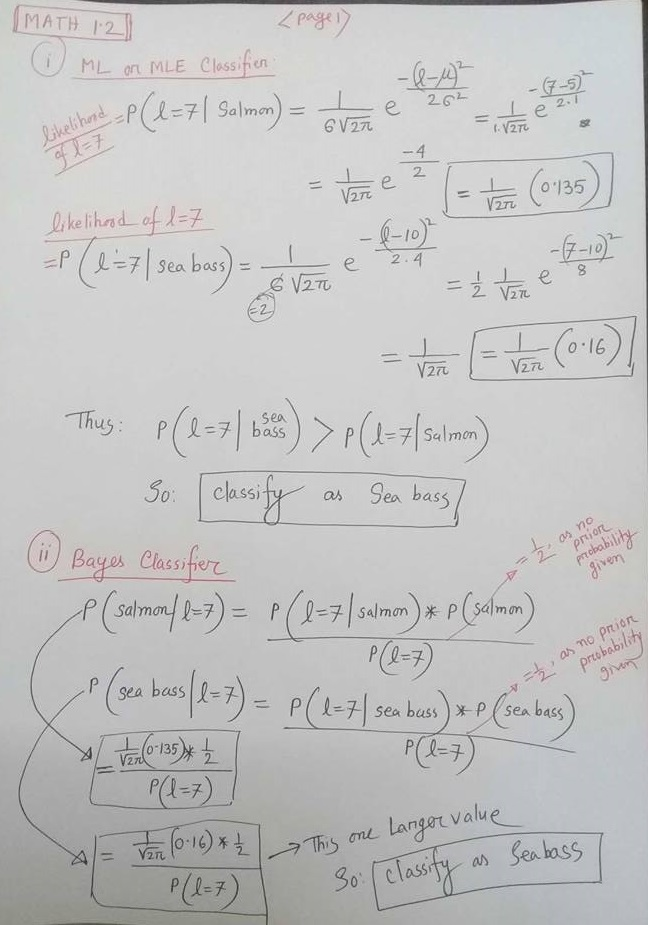 MATH 1.2 <page 1>
i ML or MLE Classifier:
likelihood of l=7 = P(l=7 | Salmon) = 1/(6√2π) e^(-(l-μ)²/2σ²) = 1/(1.√2π) e^(-(7-5)²/2.1)
= 1/√2π e^(-4/2) = 1/√2π (0.135)
likelihood of l=7
= P(l=7 | sea bass) = 1/(6√2π) e^(-(l-10)²/2.4) = 1/2 1/√2π e^(-(7-10)²/8)
=2
= 1/√2π = 1/√2π (0.16)
Thus: P(l=7 | sea bass) > P(l=7 | Salmon)
So: classify as Sea bass
ii Bayes Classifier
= 1/2, as no prior probability given
P(salmon | l=7) = P(l=7 | salmon) * P(salmon) / P(l=7)
= 1/2, as no prior probability given
P(sea bass | l=7) = P(l=7 | sea bass) * P(sea bass) / P(l=7)
= 1/√2π (0.135) * 1/2 / P(l=7)
= 1/√2π (0.16) * 1/2 / P(l=7) → This one Larger value
So: classify as Seabass